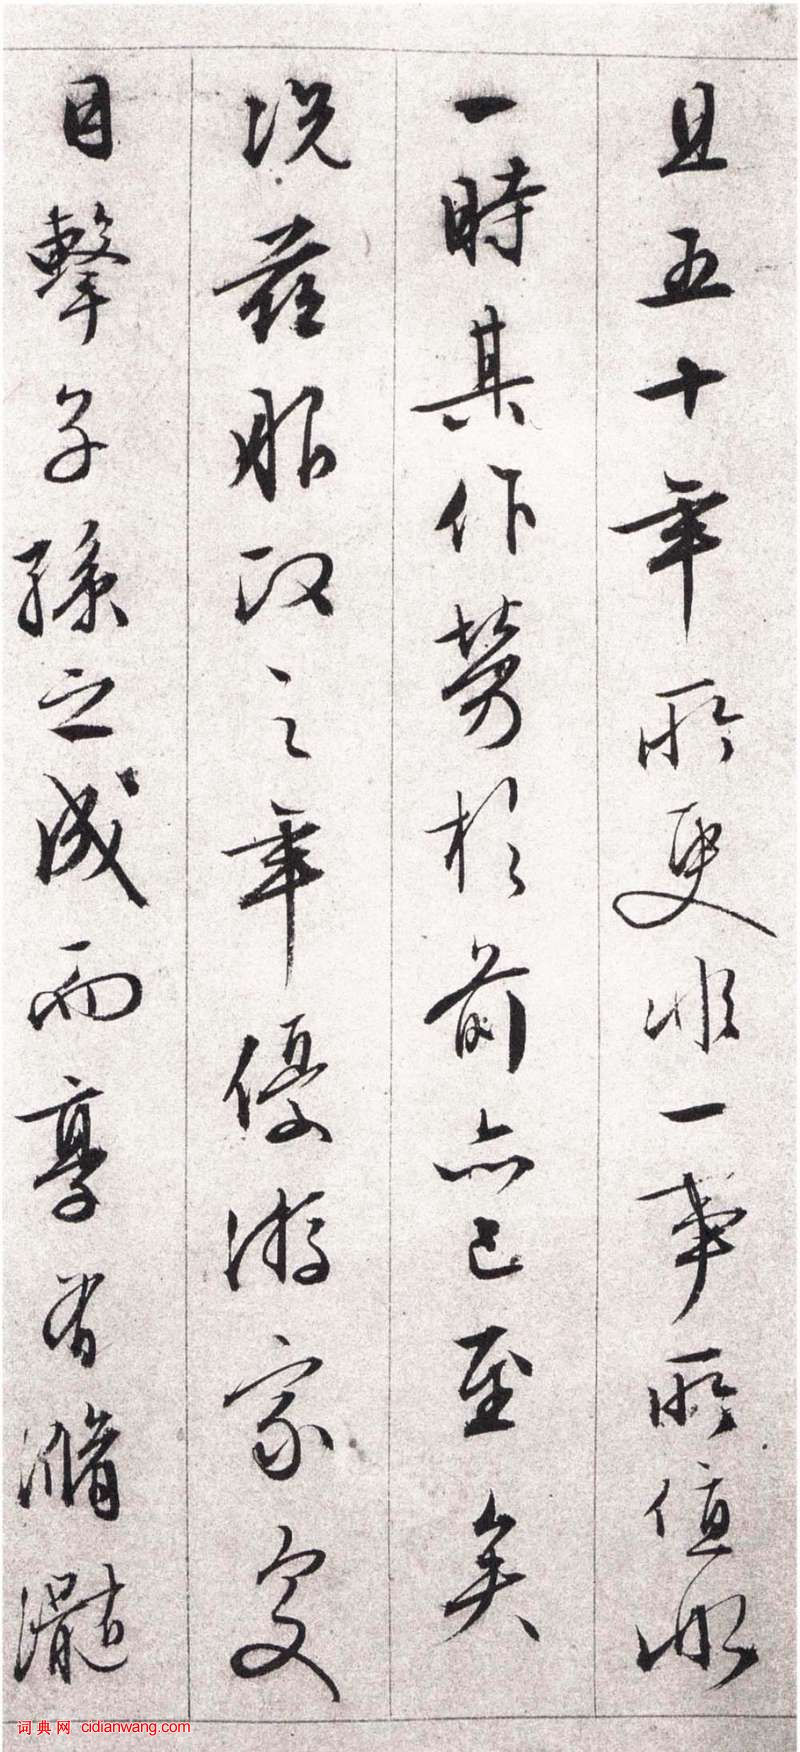 且五十年所更非一事所值非
一時其作勞於前亦已至矣
況茲服政之年優游家處
目擊子孫之成而享有滫瀡
词典网 cidianwang.com